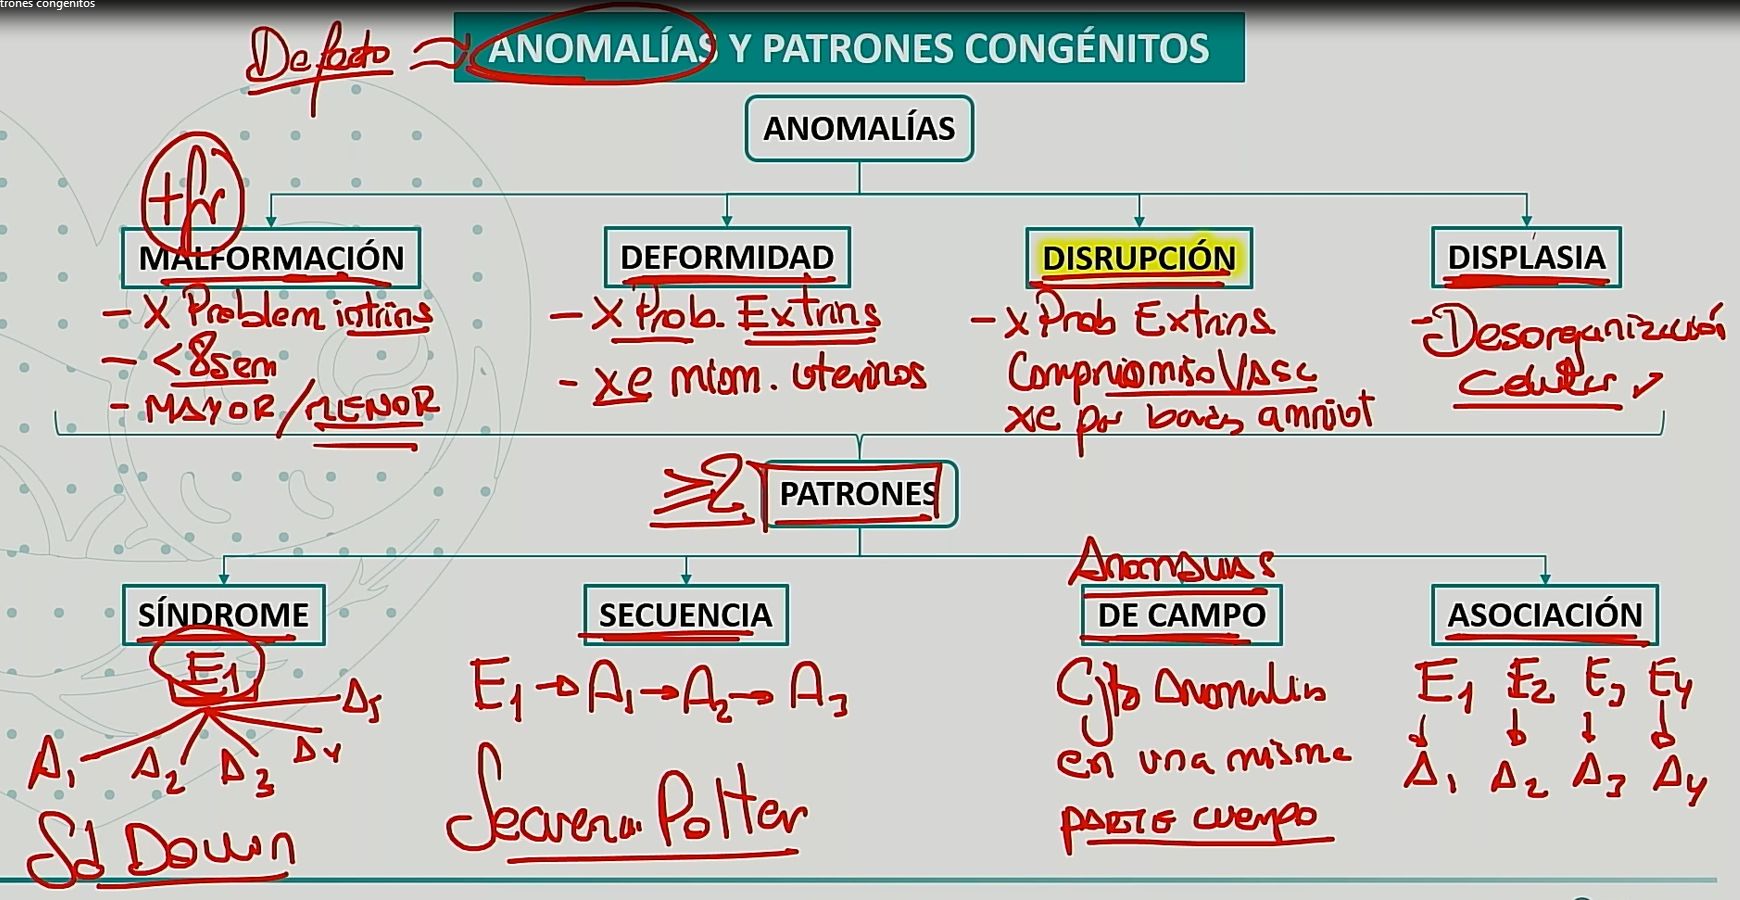 trones congénitos
Defecto ≈ ANOMALÍAS Y PATRONES CONGÉNITOS
ANOMALÍAS
+fr
MALFORMACIÓN
- X Problem intrins
- < 8 sem
- MAYOR / MENOR
DEFORMIDAD
- X Prob. Extrins
- xe miom. uterinos
DISRUPCIÓN
- x Prob Extrins
Compromiso Vasc
xe por bandas amniot
DISPLASIA
- Desorganización
Celular
≥2 PATRONES
SÍNDROME
E1
A1 A2 A3 A4 A5
Sd Down
SECUENCIA
E1 → A1 → A2 → A3
Secuencia Potter
Anomalías
DE CAMPO
Cjto Anomalías
en una misma
PARTE cuerpo
ASOCIACIÓN
E1 E2 E3 E4
↓ ↓ ↓ ↓
A1 A2 A3 A4